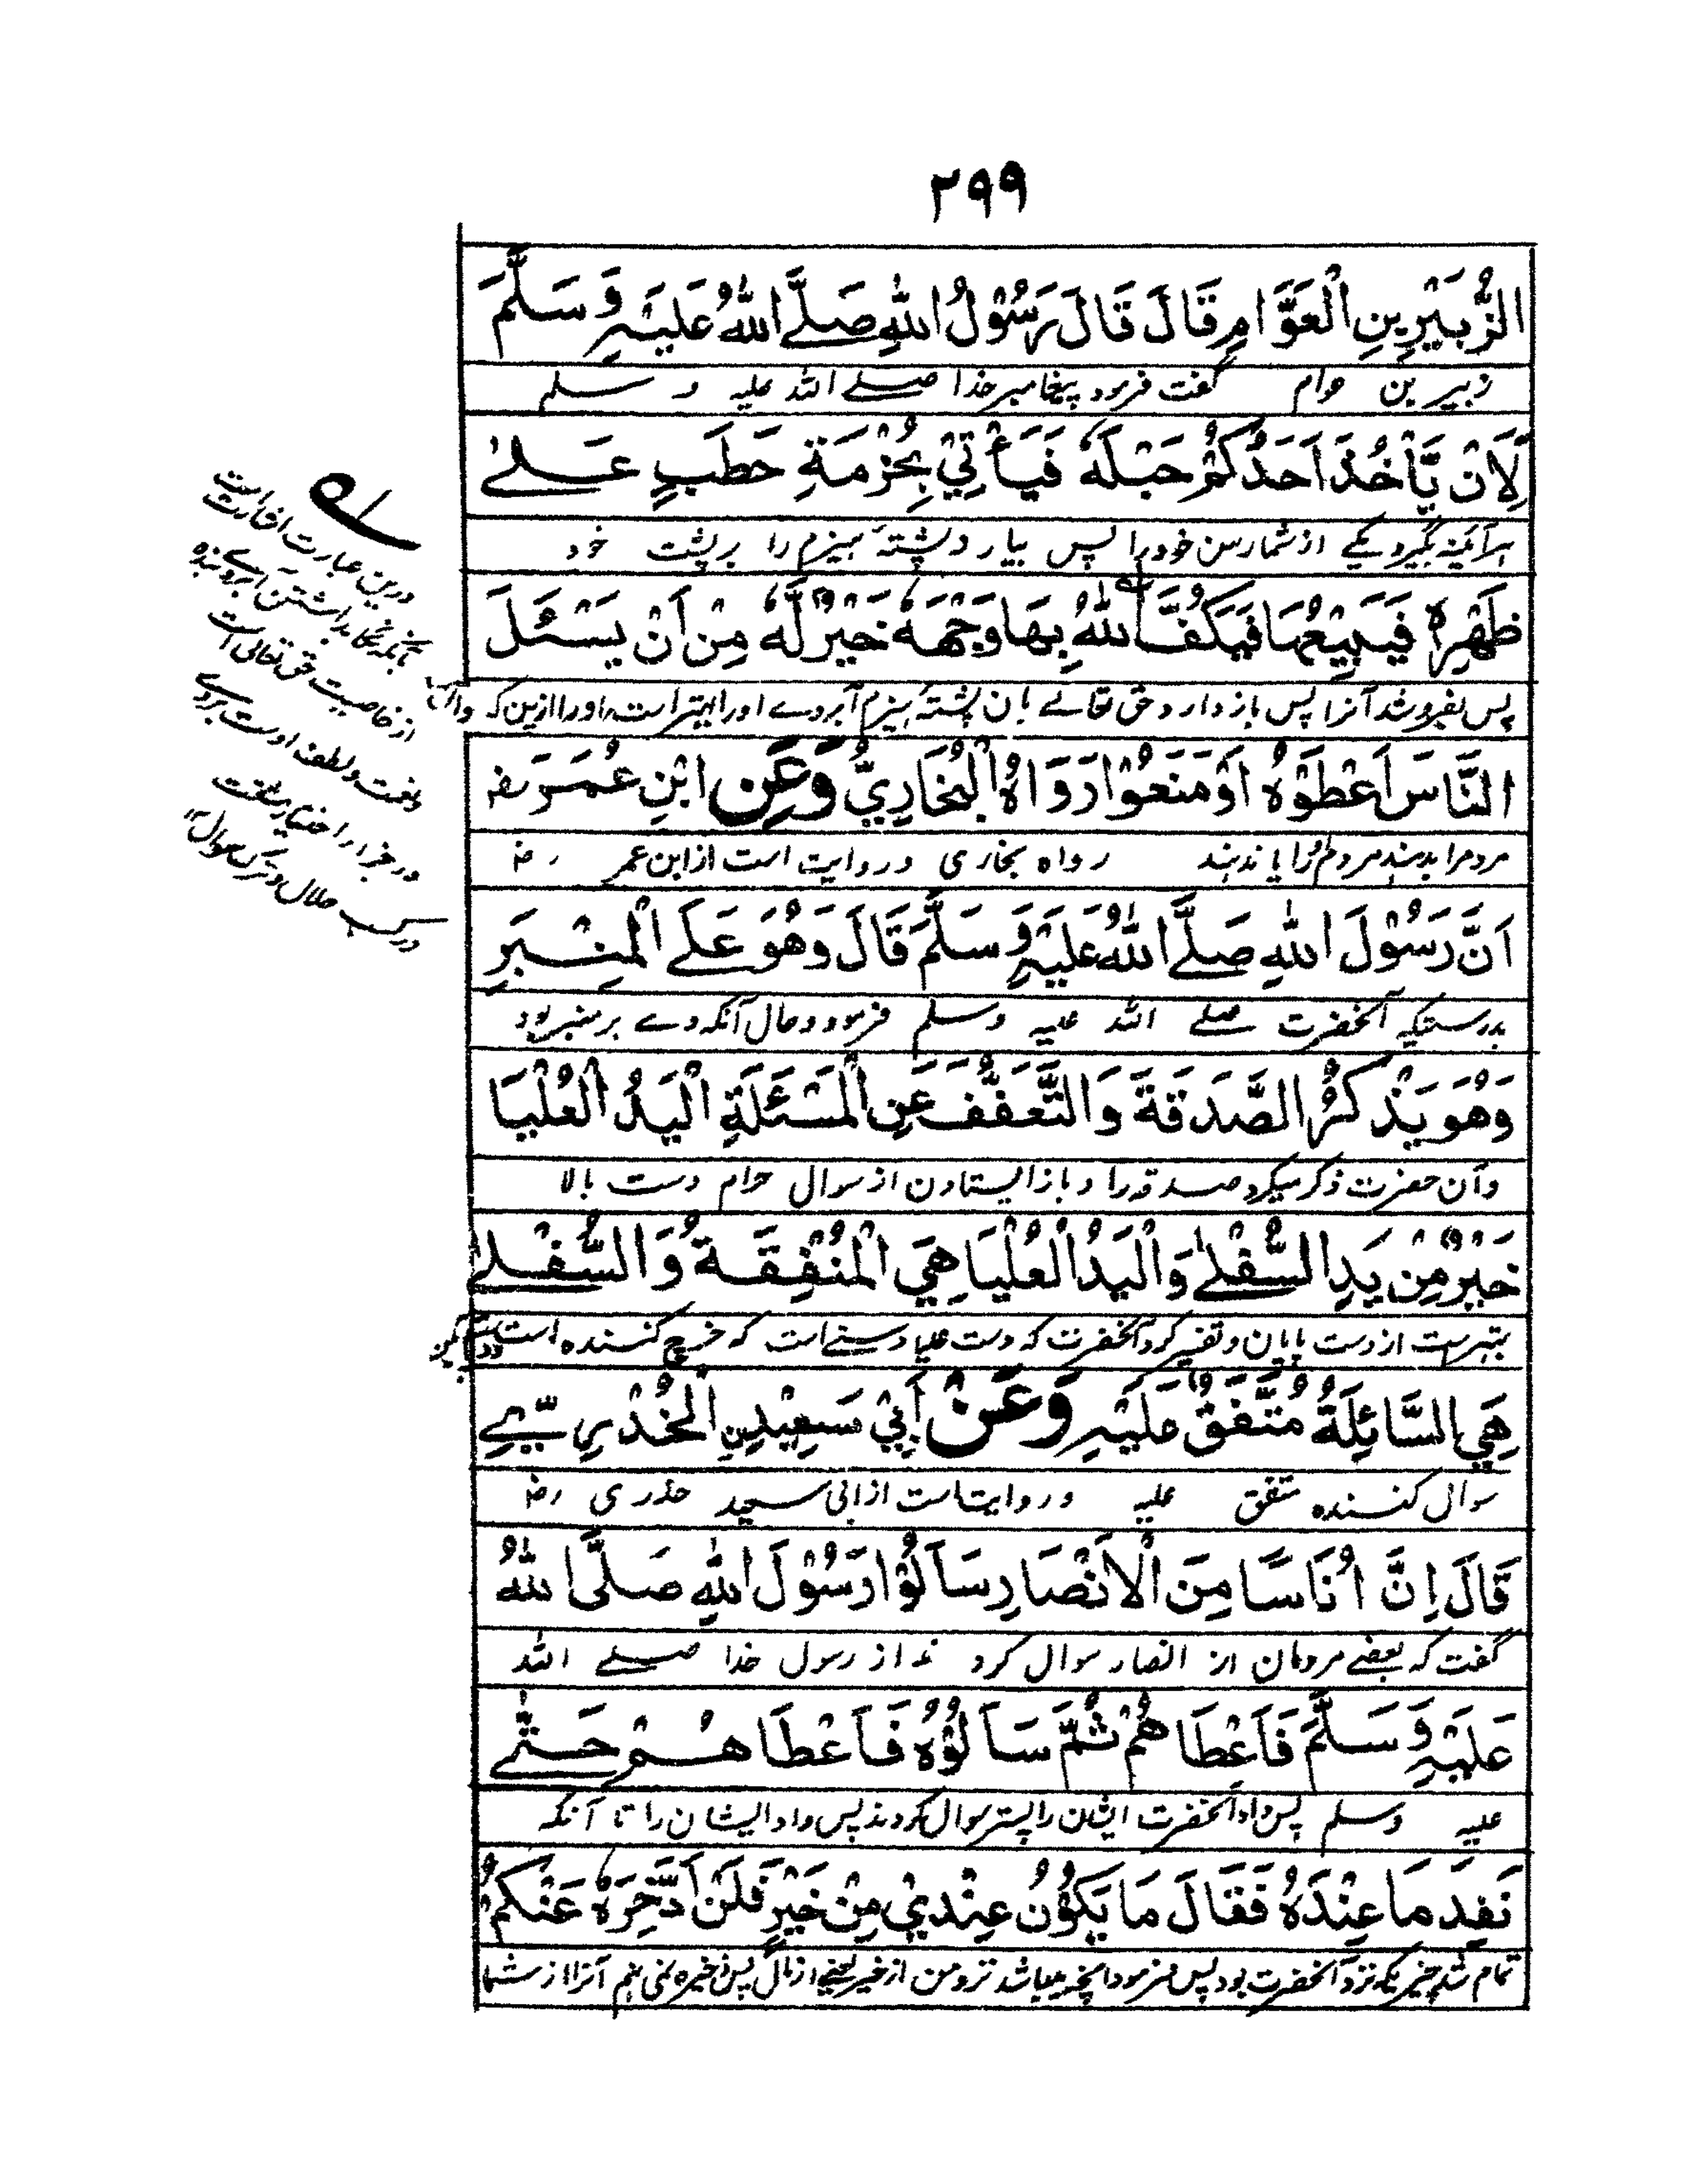 ۲۹۹
الزُّبَيْرِبْنِ الْعَوَّامِ قَالَ قَالَ رَسُوْلُ اللّٰهِ صَلَّے اللّٰهُ عَلَيْهِ وَسَلَّمَ
زبیر بن عوام گفت فرمود پیغامبر خدا صلے اللہ علیہ و سلم
لَاَنْ يَّأْخُذَ اَحَدُكُمْ حَبْلَهٗ فَيَأْتِيْ بِحُزْمَةِ حَطَبٍ عَلٰے
ہرآئینہ بگیرد یکے از شما رسن خود را پس بیارد پشتۂ ہیزم را بر پشت خود
ظَهْرِهٖ فَيَبِيْعُهَا فَيَكُفَّ اللّٰهُ بِهَا وَجْهَهٗ خَيْرٌ لَّهٗ مِنْ اَنْ يَسْئَلَ
پس بفروشد آنرا پس باز دارد حق تعالے بآن پشتۂ ہیزم آبروے اورا بہتر است اورا ازین کہ
النَّاسَ اَعْطَوْهُ اَوْ مَنَعُوْا رَوَاهُ الْبُخَارِيُّ وَعَنِ ابْنِ عُمَرَ رض
مردم را بدہند مردم اورا یا ندہند رواہ بخاری و روایت است از ابن عمر رض
اَنَّ رَسُوْلَ اللّٰهِ صَلَّے اللّٰهُ عَلَيْهِ وَسَلَّمَ قَالَ وَهُوَ عَلَے الْمِنْبَرِ
بدرستیکہ آنحضرت صلے اللہ علیہ وسلم فرمود و حال آنکہ وے بر منبر بود
وَهُوَ يَذْكُرُ الصَّدَقَةَ وَالتَّعَفُّفَ عَنِ الْمَسْئَلَةِ الْيَدُ الْعُلْيَا
و آن حضرت ذکر میکرد صدقہ را و باز ایستادن از سوال حرام دست بالا
خَيْرٌ مِّنْ يَدِ السُّفْلٰے وَالْيَدُ الْعُلْيَا هِيَ الْمُنْفِقَةُ وَالسُّفْلٰے
بہتر ست از دست پایان و تفسیر کرد آنحضرت کہ دست علیا دستے است کہ خرچ کنندہ است
هِيَ السَّائِلَةُ مُتَّفَقٌ عَلَيْهِ وَعَنْ اَبِيْ سَعِيْدِنِ الْخُدْرِيِّ
سوال کنندہ متفق علیہ و روایت است از ابی سعید خدری رض
قَالَ اِنَّ اُنَاسًا مِنَ الْاَنْصَارِ سَاَلُوْا رَسُوْلَ اللّٰهِ صَلَّی اللّٰهُ
گفت کہ بعضے مردمان از انصار سوال کردند از رسول خدا صلے اللہ
عَلَيْهِ وَسَلَّمَ فَاَعْطَاهُمْ ثُمَّ سَاَلُوْهُ فَاَعْطَاهُمْ حَتّٰے
علیہ وسلم پس داد آنحضرت ایشان را پستر سوال کردند پس داد ایشان را تا آنکہ
نَفِدَ مَا عِنْدَهُ فَقَالَ مَا يَكُوْنُ عِنْدِيْ مِنْ خَيْرٍ فَلَنْ اَدَّخِرَهٗ عَنْكُمْ
تمام شد چیزیکہ نزد آنحضرت بود پس فرمود آنچہ میباشد نزد من از خیر یعنے از مال پس ذخیرہ نمی نہم آنرا از شما
درین عبارت اشارت است
بآنکہ نگاہداشتن آبروے بندہ
از خاصیت حق تعالی است
و نعمت و لطف اوست
در کسب حلال و ترک سوال